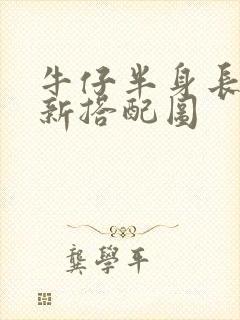 牛仔半身長
新搭配圖
龔學平